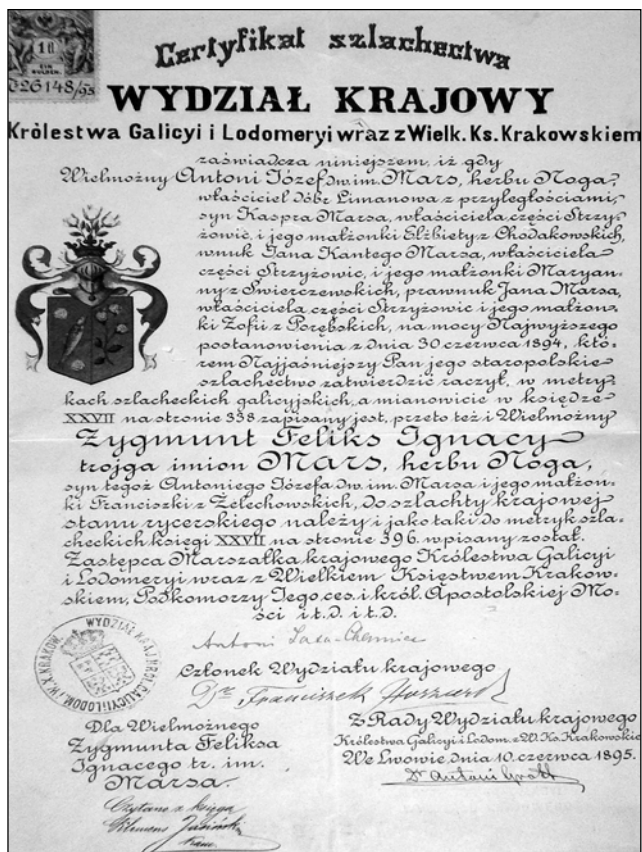 1 fl
EIN GULDEN
26148/95
Certyfikat szlachectwa
WYDZIAŁ KRAJOWY
Królestwa Galicyi i Lodomeryi wraz z Wielk. Ks. Krakowskiem
zaświadcza niniejszem, iż gdy
Wielmożny Antoni Józef dw. im. Mars, herbu Noga,
właściciel dóbr Limanowa z przyległościami,
syn Kaspra Marsa, właściciela części Strzy-
żowic, i jego małżonki Elżbiety z Chodakowskich,
wnuk Jana Kantego Marsa, właściciela
części Strzyżowic, i jego małżonki Maryan-
ny z Świerczewskich, prawnuk Jana Marsa,
właściciela części Strzyżowic i jego małżon-
ki Zofii z Porębskich, na mocy Najwyższego
postanowienia z dnia 30 czerwca 1894, któ-
rem Najjaśniejszy Pan jego staropolskie
szlachectwo zatwierdzić raczył, w metry-
kach szlacheckich galicyjskich, a mianowicie w księdze
XXVII na stronie 338 zapisany jest, przeto też i Wielmożny
Zygmunt Feliks Ignacy
trojga imion Mars, herbu Noga,
syn tegoż Antoniego Józefa dw. im. Marsa i jego małżon-
ki Franciszki z Żelechowskich, do szlachty krajowej
stanu rycerskiego należy i jako taki do metryk szla-
checkich księgi XXVII na stronie 396. wpisany został.
Zastępca Marszałka krajowego Królestwa Galicyi
i Lodomeryi wraz z Wielkiem Księstwem Krakow-
skiem, Podkomorzy Jego ces. i król. Apostolskiej Mo-
ści i t. d. i t. d.
Antoni
WYDZIAŁ KRAJ. KRÓL. GALICYI I LODOM. I W. X. KRAKOW.
Członek Wydziału krajowego
Dr Franciszek
Dla Wielmożnego
Zygmunta Feliksa
Ignacego tr. im.
Marsa.
Z Rady Wydziału krajowego
Królestwa Galicyi i Lodom. z W. Ks. Krakowskie
We Lwowie, dnia 10. czerwca 1895.
Dr Antoni
Czytano z księgą
Klemens